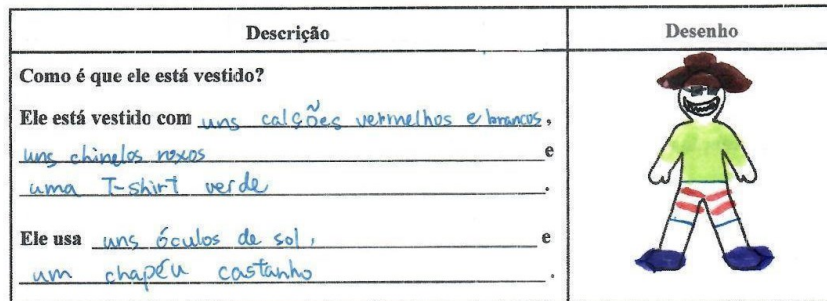 Descrição
Desenho
Como é que ele está vestido?
Ele está vestido com uns calções vermelhos e brancos,
uns chinelos roxos e
uma T-shirt verde.
Ele usa uns óculos de sol, e
um chapéu castanho.